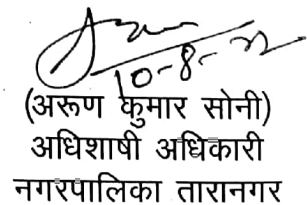 10-8-22
(अरूण कुमार सोनी)
अधिशाषी अधिकारी
नगरपालिका तारानगर